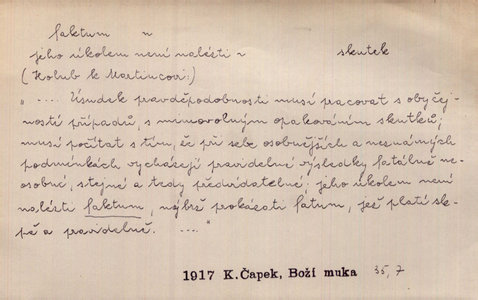 faktum n
jeho úkolem není nalézti ~ skutek
(Holub k Martincovi:)
" .... Úsudek pravděpodobnosti musí pracovat s obyčej-
ností případů, s mimovolným opakováním skutků;
musí počítat s tím, že při sebe osobnějších a neznámých
podmínkách vycházejí pravidelné výsledky fatálně ne-
osobní, stejné a tedy předvídatelné; jeho úkolem není
nalézti faktum, nýbrž prokázati fatum, jež platí sle-
pě a pravidelně. ...."
1917 K.Čapek, Boží muka 35,7